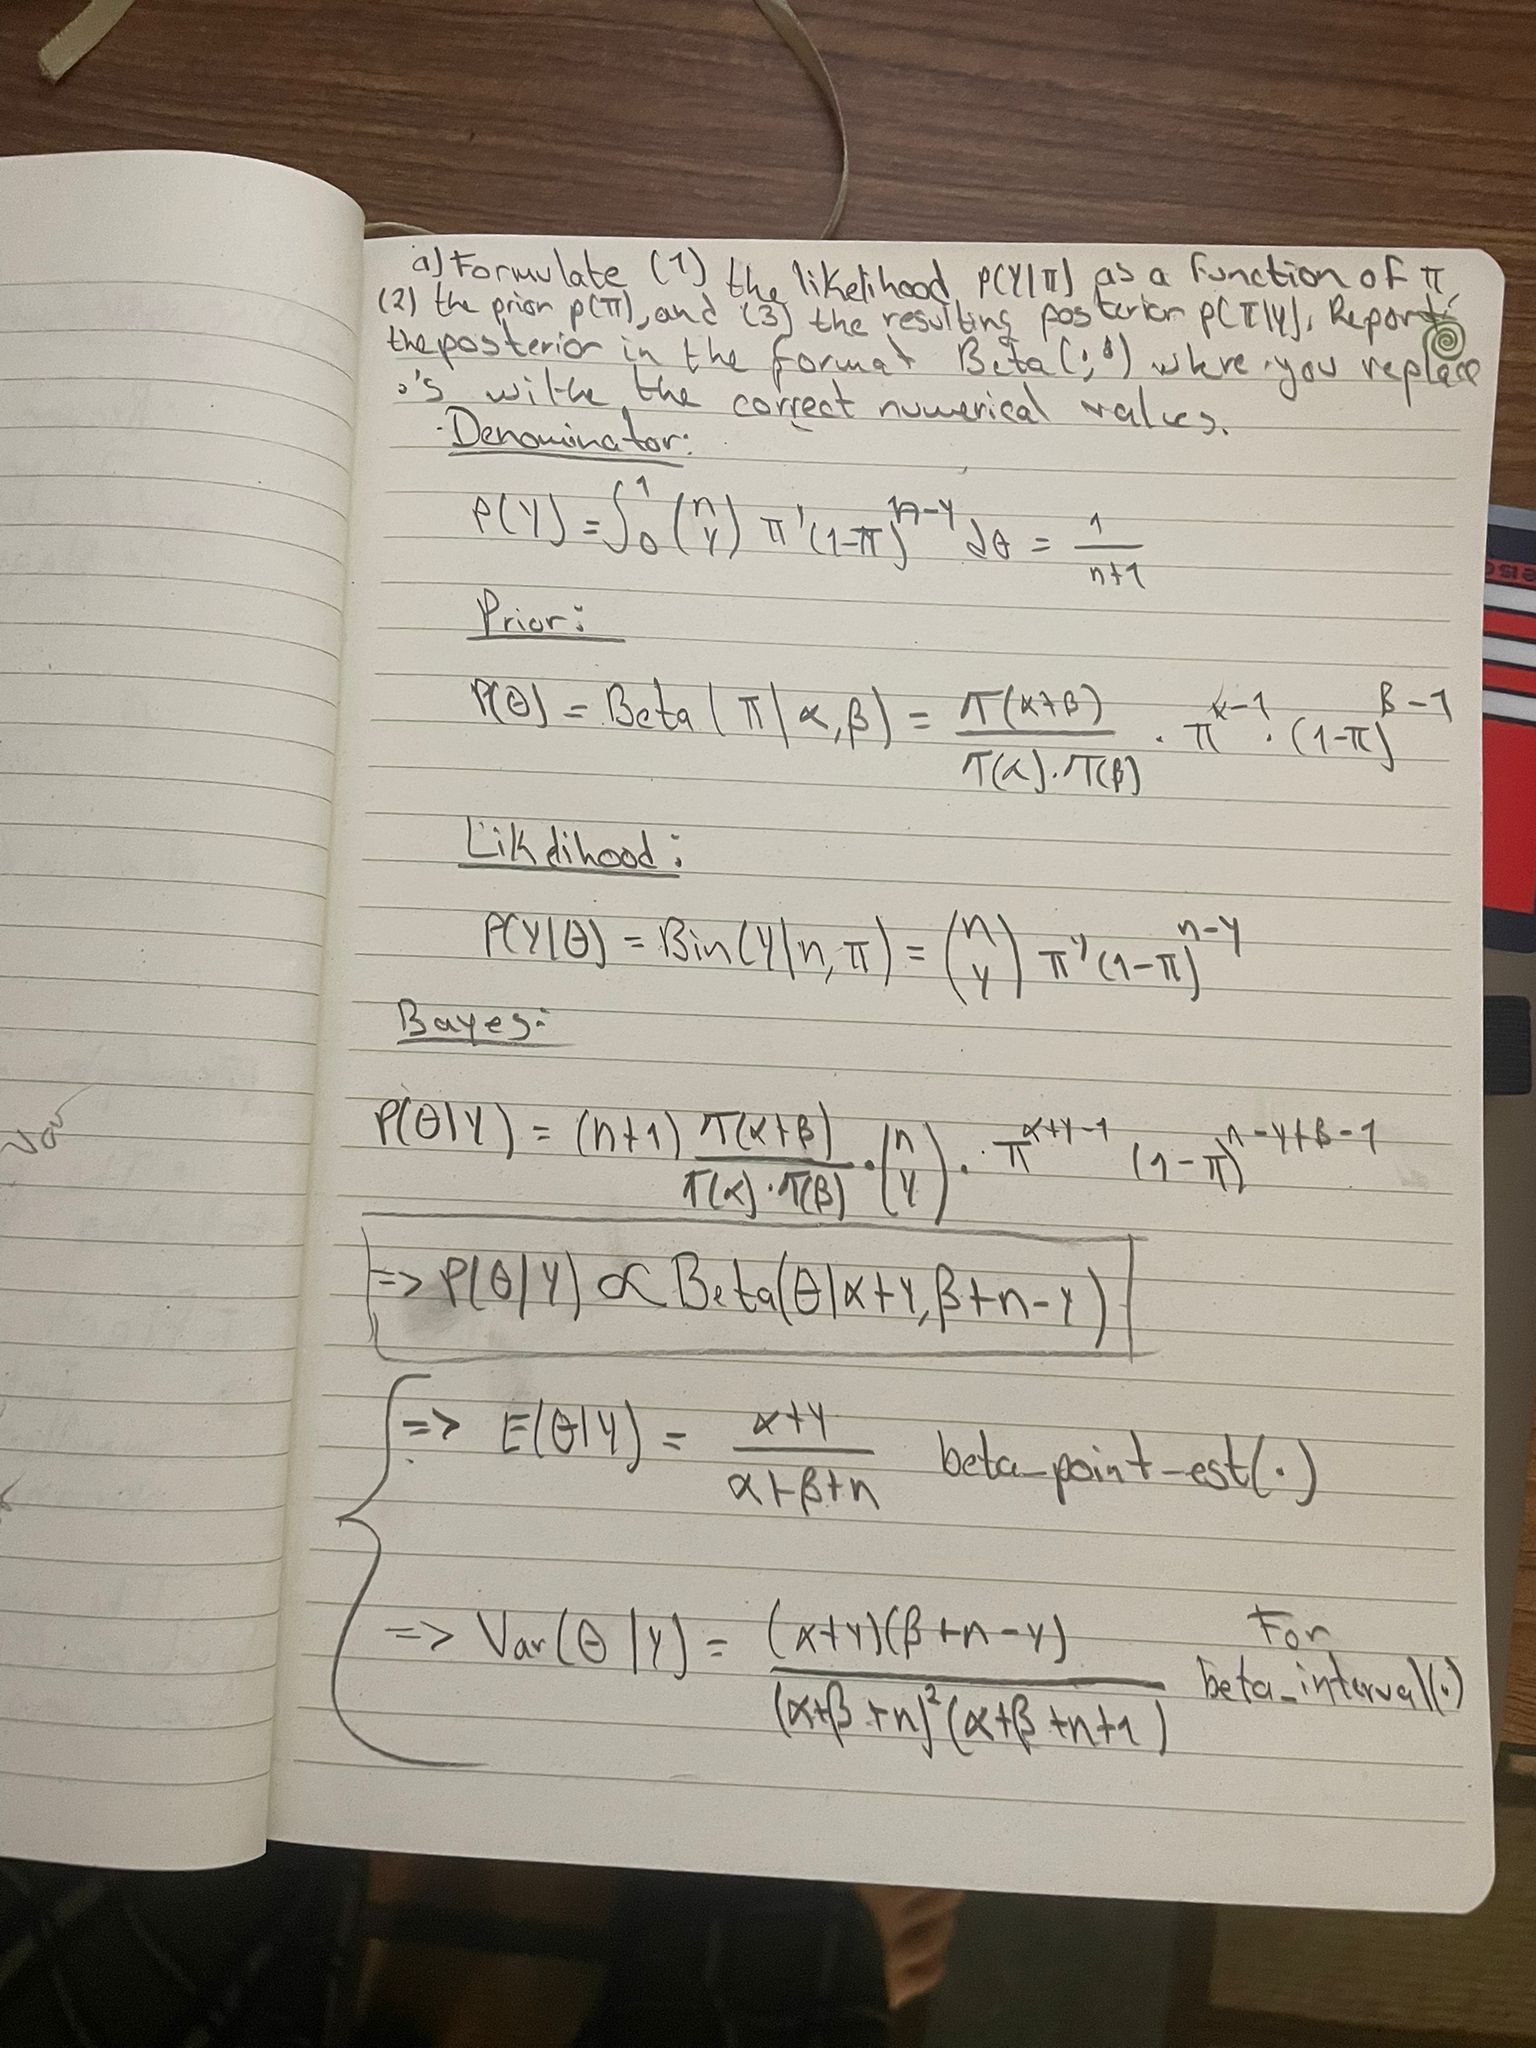 a) Formulate (1) the likelihood p(y|π) as a function of π,
(2) the prior p(π), and (3) the resulting posterior p(π|y). Report
the posterior in the format Beta(·,·) where you replace
·'s withe the correct numerical values.
Denominator:
P(y) = ∫₀¹ (n y) π^y (1-π)^(n-y) dθ = 1/(n+1)
Prior:
P(θ) = Beta(π|α,β) = Γ(α+β)/(Γ(α)·Γ(β)) · π^(α-1) · (1-π)^(β-1)
Likelihood:
P(y|θ) = Bin(y|n,π) = (n y) π^y (1-π)^(n-y)
Bayes:
P(θ|y) = (n+1) Γ(α+β)/(Γ(α)·Γ(β)) · (n y) · π^(α+y-1) (1-π)^(n-y+β-1)
=> P(θ|y) ∝ Beta(θ|α+y, β+n-y)
=> E(θ|y) = (α+y)/(α+β+n) beta_point_est(·)
=> Var(θ|y) = (α+y)(β+n-y)/((α+β+n)²(α+β+n+1)) For
beta_interval(·)